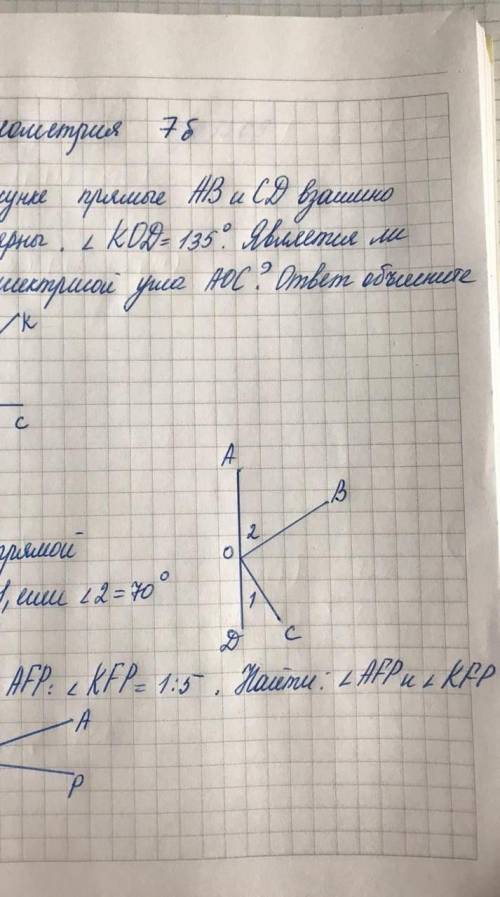 ометрия 7б
сунке прямые АВ и CD взаимно
ярны. ∠KOD=135°. Является ли
иссектрисой угла АОС? Ответ объясните
K
C
A
B
2
O
прямой
1, если ∠2=70°
1
D
C
AFP: ∠KFP=1:5. Найти: ∠AFP и ∠KFP
A
P